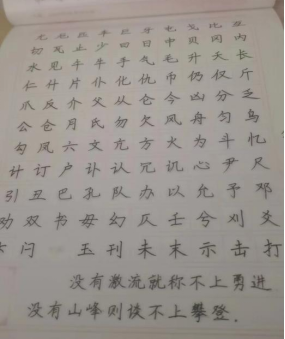 尤 匹 车 巨 牙 屯 戈 比 互
切 瓦 止 少 曰 日 中 贝 冈 内
水 见 午 牛 手 气 毛 升 夭 长
仁 什 片 仆 化 仇 币 仍 仅 斤
爪 反 介 父 从 仑 今 凶 分 乏
公 仓 月 氏 勿 欠 风 丹 匀 乌
勾 凤 六 文 亢 方 火 为 斗 忆
计 订 户 讣 认 冗 讥 心 尹 尺
引 丑 巴 孔 队 办 以 允 予 邓
劝 双 书 毋 幻 仄 壬 兮 刈 爻
闩 玉 刊 未 末 示 击 打
没有激流就称不上勇进
没有山峰则谈不上攀登.